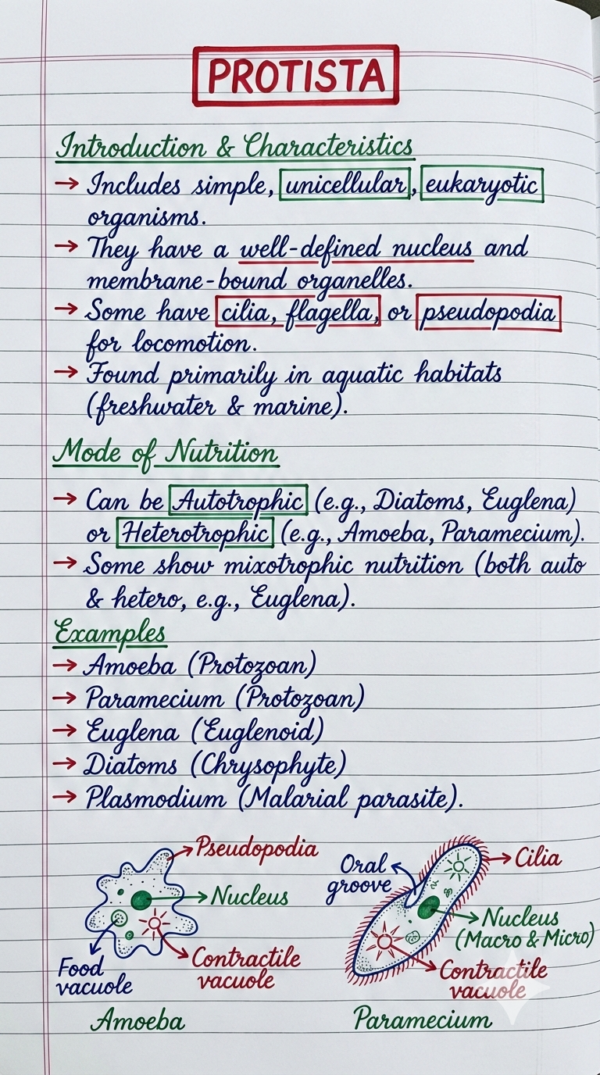 PROTISTA
Introduction & Characteristics
→ Includes simple, unicellular, eukaryotic
organisms.
→ They have a well-defined nucleus and
membrane-bound organelles.
→ Some have cilia, flagella, or pseudopodia
for locomotion.
→ Found primarily in aquatic habitats
(freshwater & marine).
Mode of Nutrition
→ Can be Autotrophic (e.g., Diatoms, Euglena)
or Heterotrophic (e.g., Amoeba, Paramecium).
→ Some show mixotrophic nutrition (both auto
& hetero, e.g., Euglena).
Examples
→ Amoeba (Protozoan)
→ Paramecium (Protozoan)
→ Euglena (Euglenoid)
→ Diatoms (Chrysophyte)
→ Plasmodium (Malarial parasite).
Pseudopodia
Nucleus
Contractile
vacuole
Food
vacuole
Amoeba
Oral
groove
Cilia
Nucleus
(Macro & Micro)
Contractile
vacuole
Paramecium